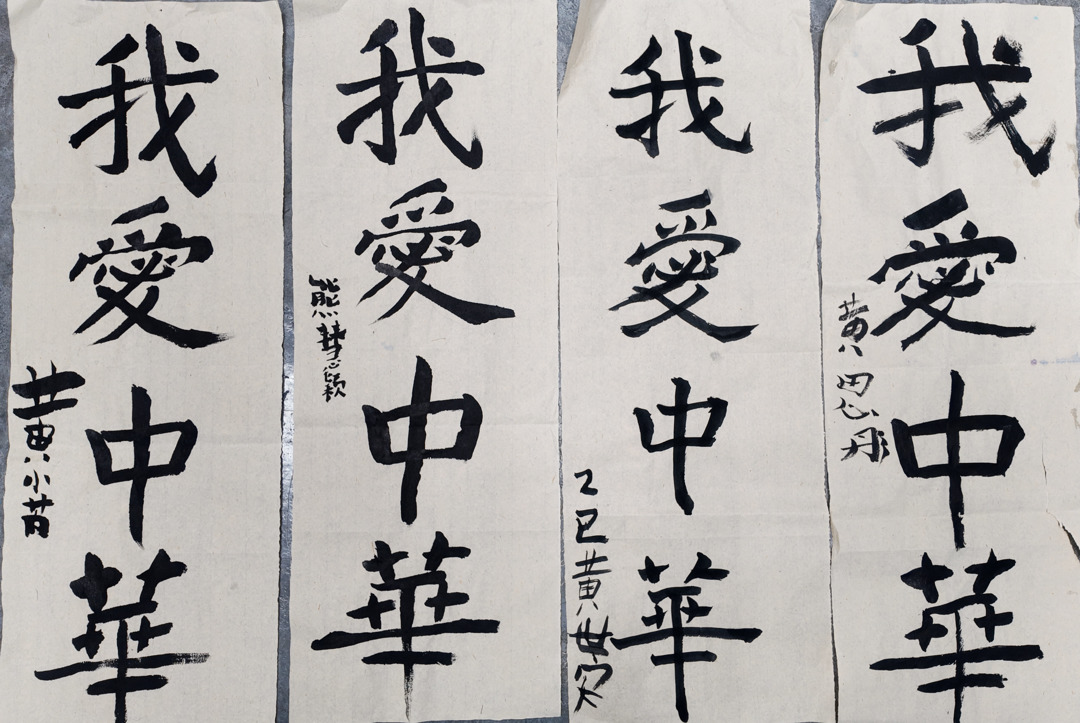 我愛中華
黄小昔
我愛中華
熊慧颖
我愛中華
乙巳黄世安
我愛中華
黄思彤